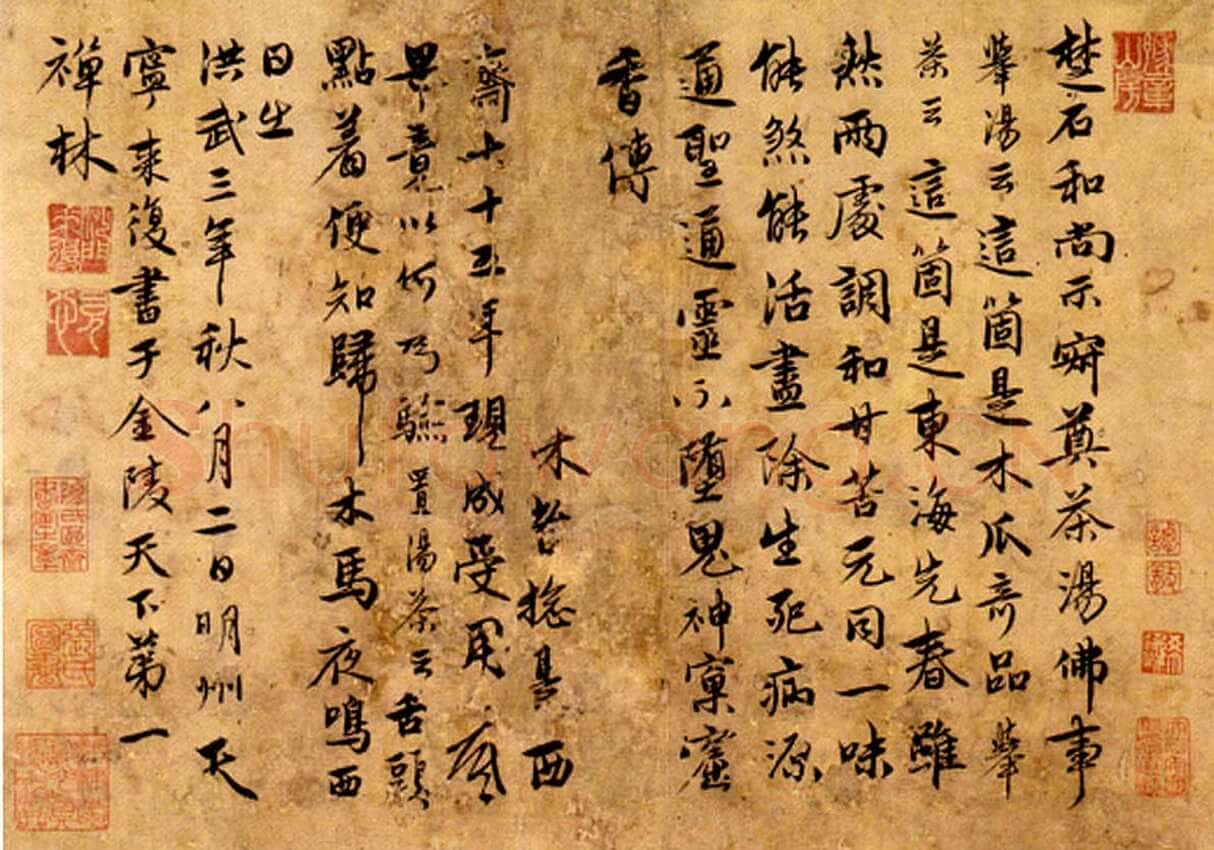 楚石和尚示寂奠茶湯佛事
舉湯云這箇是木瓜奇品舉
茶云這箇是東海先春雖
然兩處調和甘苦元同一味
能煞能活盡除生死病源
通聖通靈不墮鬼神窠窟
香傳
木揔是西
齋七十五年現成受用底
畢竟以何為驗置湯茶云舌頭
點着便知歸木馬夜鳴西
日出
洪武三年秋八月二日明州天
寧來復書于金陵天下第一
禪林
Shufawang.CN